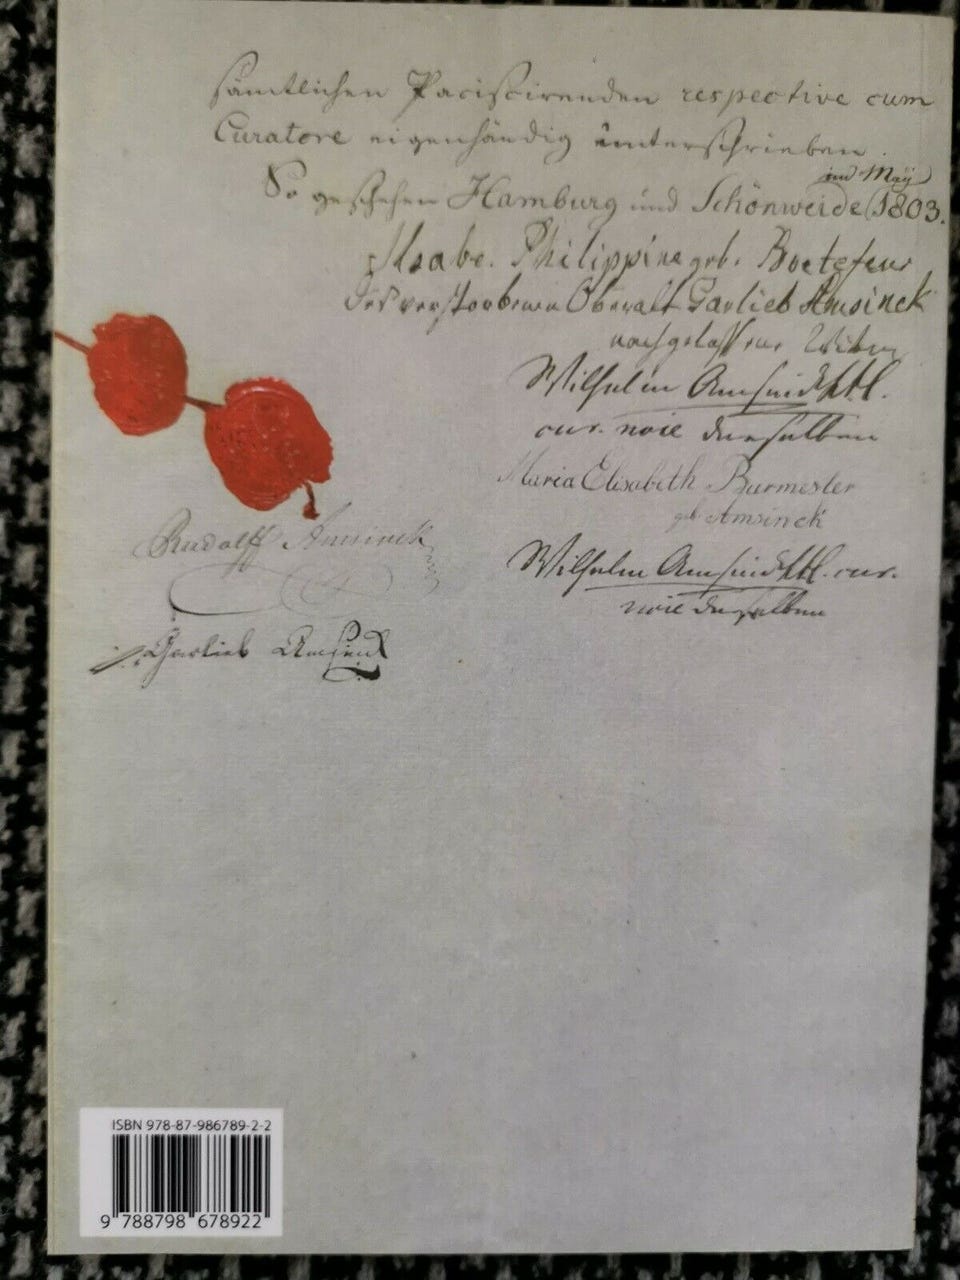 sämtlichen Paciscirenden respective cum
Curatore eigenhändig unterschrieben.
So geschehen Hamburg und Schönweide im May 1803.
Ilsabe. Philippine geb. Boetefeur
des verstorbenen Oberalt Garlieb Amsinck
nachgelassene Witwe
Wilhelm Amsinck
cur. noie derselben
Maria Elisabeth Burmester
geb. Amsinck
Rudolff Amsinck
Wilhelm Amsinck cur.
noie derselben
Garlieb Amsinck
ISBN 978-87-986789-2-2
9 788798 678922